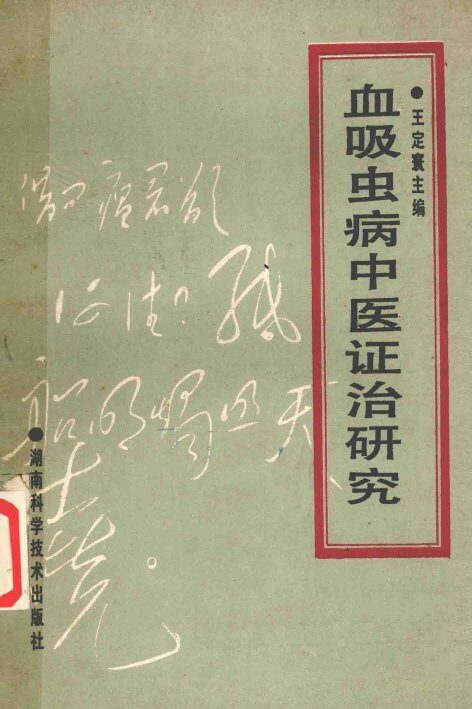 血吸虫病中医证治研究
●王定寰主编
借问瘟君欲
何往？纸
船明烛照天
烧。
●湖南科学技术出版社